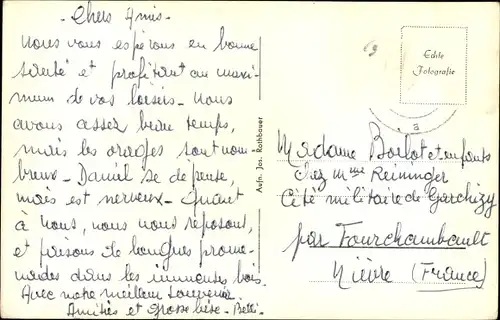 - Chers Amis -
Nous vous espérons en bonne
santé et profitant au maxi-
mum de vos loisirs - Nous
avons assez beau temps,
mais les orages sont nom
breux - Daniel se dépense,
mais est nerveux - Quant
à nous, nous nous reposons,
et faisons de longues prome-
nades dans les immenses bois
Avec notre meilleur souvenir
Amitiés et grosse bise -
Aufn. Jos. Rothbauer
Echte
Fotografie
a
Madame et enfants
Chez Mme Reininger
Cité militaire de Garchizy
par Fourchambault
Nièvre (France)